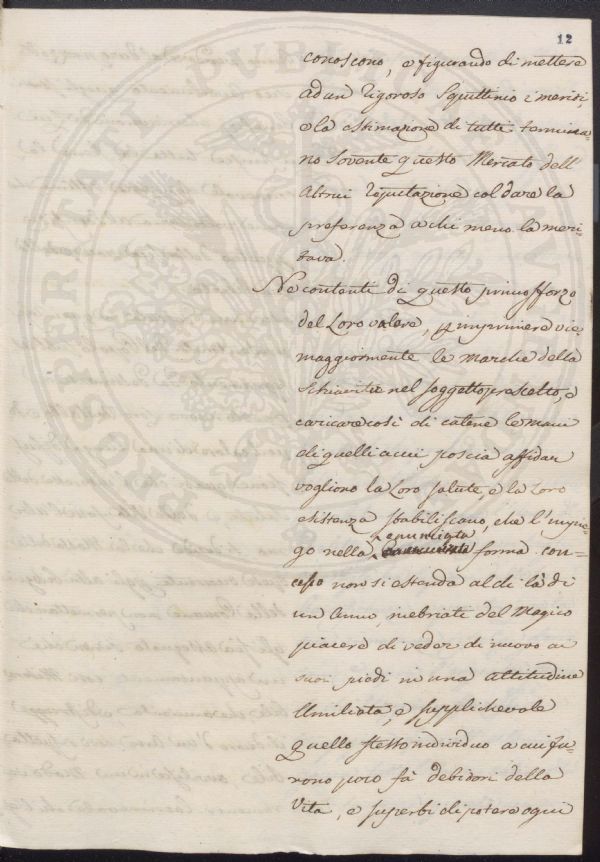 12
conoscono, e figurando di mettere
ad un rigoroso Squittinio i meriti,
e la estimazione di tutti termina-
no Sovente questo Mercato dell'
Altrui reputazione col dare la
preferenza a chi meno la meri-
tava.
Ne contenti di questo primo sforzo
del Loro valere, p imprimere vie
maggiormente le marche della
Schiavitù nel soggetto prescelto, e
caricare così di catene le mani
di quelli a cui poscia affidar
vogliono la Loro salute, e la Loro
esistenza stabiliscano, che l'impie-
enunziata
go nella forma con-
cesso non si estenda al di là di
un Anno inebriati del Magico
piacere di veder di nuovo ai
suoi piedi in una attitudine
Umiliata, e supplichevole
quello stesso individuo a cui fu-
rono poco fà debitori della
Vita, e superbi di potere ogni
PROSPERITATI PUBLICAE